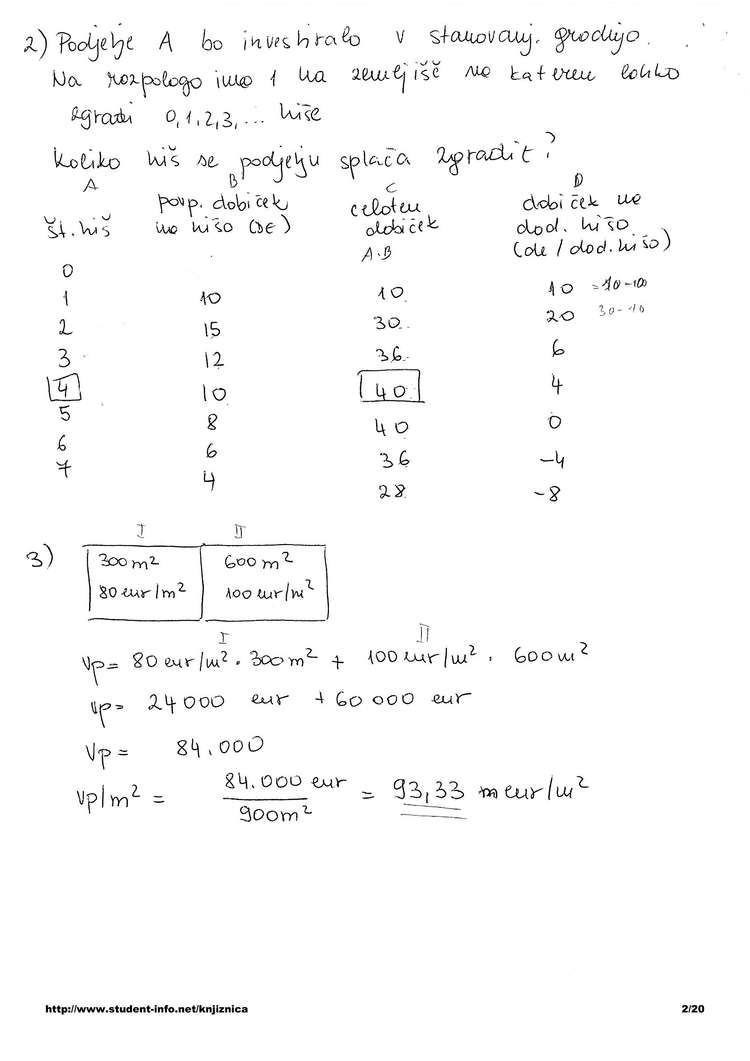 2) Podjetje A bo investiralo v stanovanj. gradnjo.
Na razpologo imo 1 ha zemljišč na katerem lahko
zgradi 0,1,2,3,... hiše
Koliko hiš se podjetju splača zgradit?
A B C D
št. hiš povp. dobiček na hišo (DE) celoten dobiček A·B dobiček na dod. hišo (de / dod. hišo)
0
1 10 10 10 = 10-100
2 15 30 20 30-10
3 12 36 6
4 10 40 4
5 8 40 0
6 6 36 -4
7 4 28 -8
3) I II
300 m² 600 m²
80 eur/m² 100 eur/m²
I II
Vp= 80 eur/m² · 300 m² + 100 eur/m² · 600 m²
Vp= 24000 eur + 60 000 eur
Vp = 84.000
Vp/m² = 84.000 eur / 900m² = 93,33 eur/m²
http://www.student-info.net/knjiznica 2/20